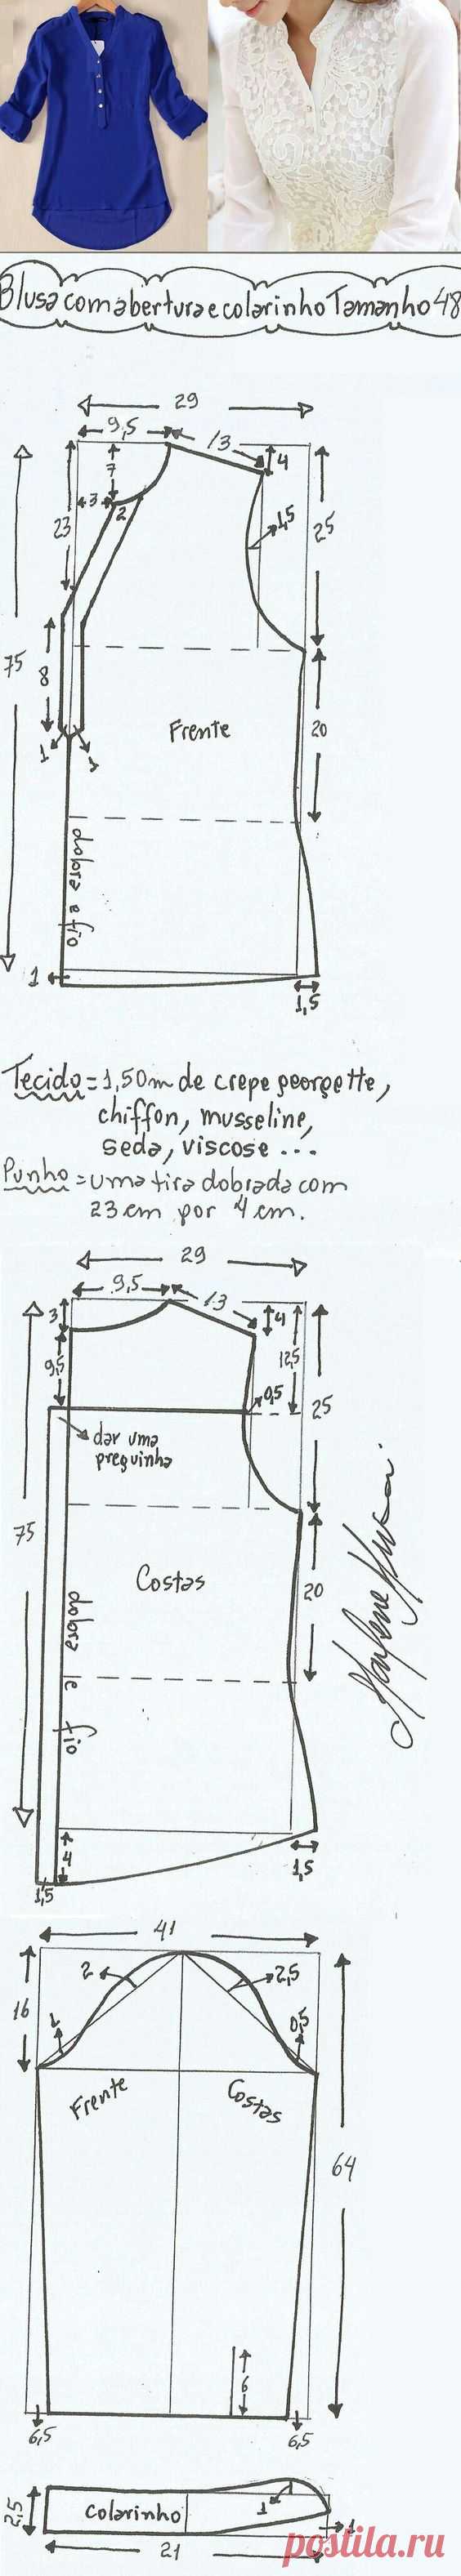 Blusa com abertura e colarinho Tamanho 48
29
9,5
13
7
4
3
2
23
1,5
25
75
8
Frente
20
1
1
dobra e fio
1
1,5
Tecido = 1,50m de crepe georgette,
chiffon, musseline,
seda, viscose ...
Punho = uma tira dobrada com
23 cm por 4 cm.
29
9,5
13
3
4
9,5
12,5
0,5
25
dar uma
preguinha
75
Costas
20
dobra e fio
4
1,5
1,5
Marlene Mukai
41
2
2,5
16
1
0,5
Frente
Costas
64
6
6,5
6,5
2,5
Colarinho
1
1
21
postila.ru